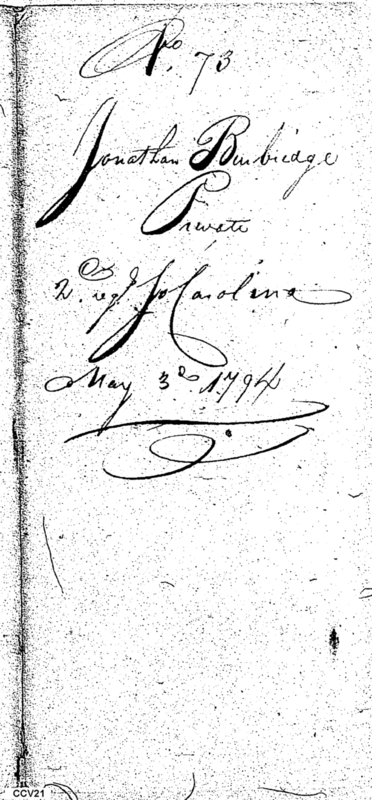 No. 73
Jonathan Bumbridge
Private
2d. regt So Carolina
May 3d 1794
CCV21